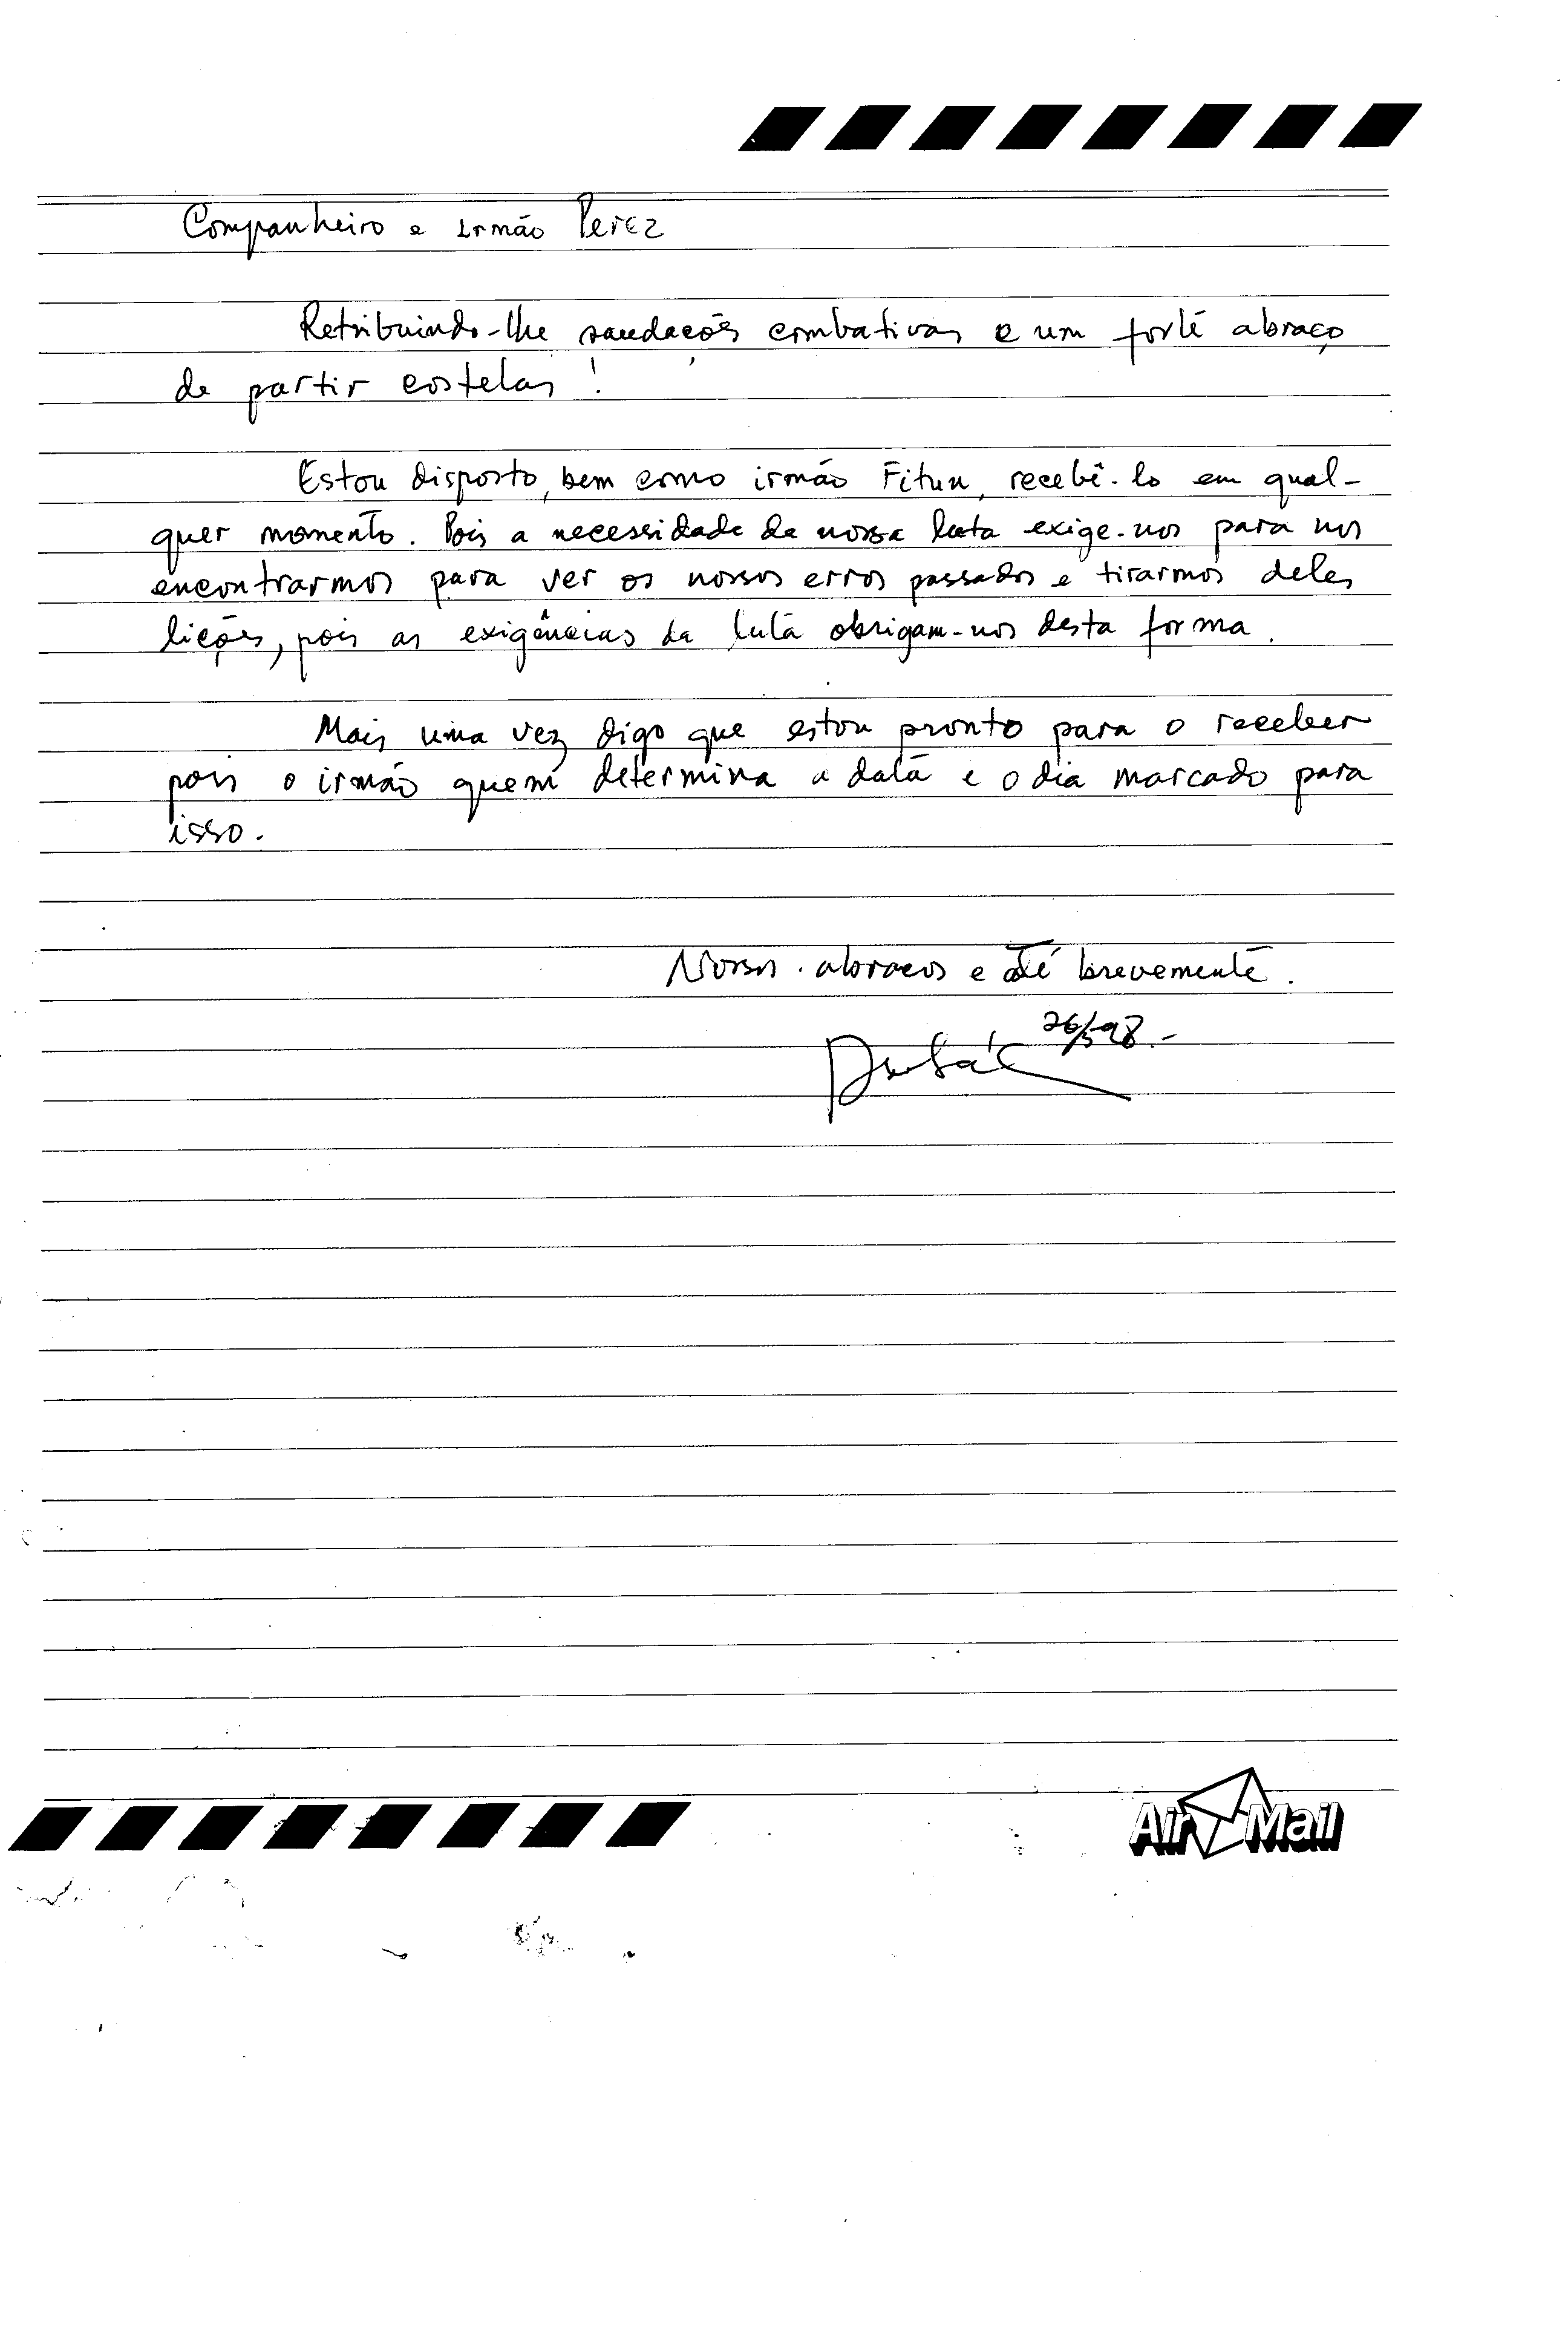 Companheiro e irmão Perez
Retribuindo-lhe saudações combativas e um forte abraço
de partir costelas !
Estou disposto, bem como irmão Fitun, recebê-lo em qual-
quer momento. Pois a necessidade da nossa luta exige-nos para nos
encontrarmos para ver os nossos erros passados e tirarmos deles
lições, pois as exigências da luta obrigam-nos desta forma.
Mais uma vez digo que estou pronto para o receber
pois o irmão quem determina a data e o dia marcado para
isso.
Nossos abraços e até brevemente.
26/5-98.-
Air Mail